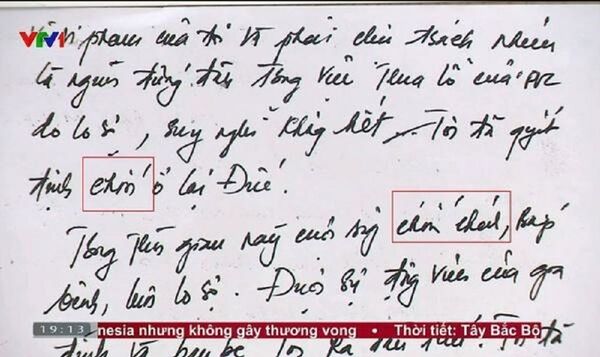 VTV1
vi phạm của tôi và phải chịu trách nhiệm
là người đứng đầu trong việc "thua lỗ" của PVC
do lo sợ, suy nghĩ không hết Tôi đã quyết
định chốn ở lại Đức.
Trong thời gian này cuộc sống chốn chánh, bấp
bênh, luôn lo sợ. Được sự động viên của gia
đình và bạn bè Tôi ra đầu thú. Tôi đã
19:13 nesia nhưng không gây thương vong • Thời tiết: Tây Bắc Bộ